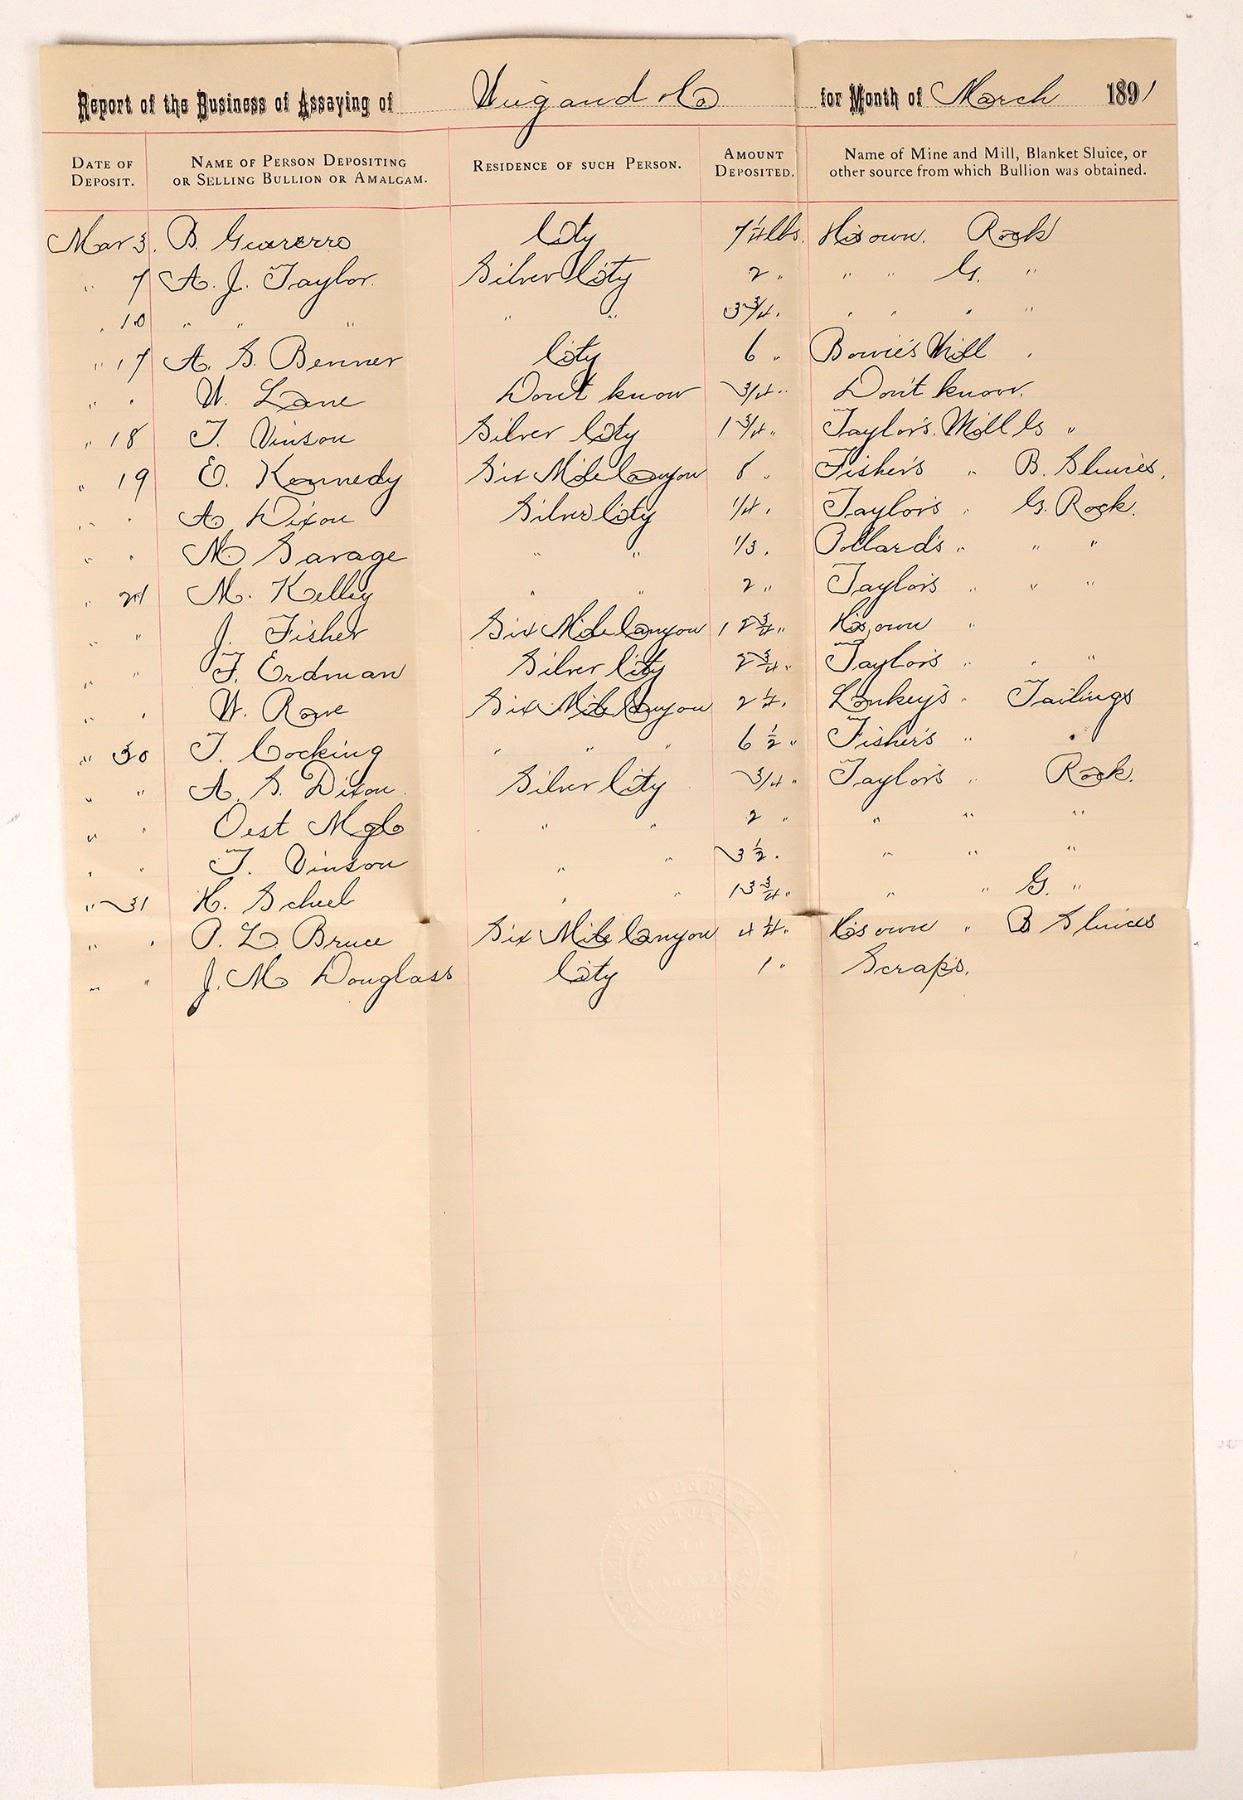 Report of the Business of Assaying of Wigand & Co for Month of March 1891
DATE OF DEPOSIT. NAME OF PERSON DEPOSITING OR SELLING BULLION OR AMALGAM. RESIDENCE OF SUCH PERSON. AMOUNT DEPOSITED. Name of Mine and Mill, Blanket Sluice, or other source from which Bullion was obtained.
Mar 3. B. Guererro City 7 1/4 lbs. His own. Rock
" 7 A. J. Taylor. Silver City 2 " " " G. "
" 10 " " " " " 3 3/4 " " " " "
" 17 A. G. Benner City 6 " Bowie's Mill "
" " W. Lane Don't know 3/4 " Don't know.
" 18 T. Vinson Silver City 1 3/4 " Taylor's Mill G "
" 19 E. Kennedy Six Mile Canyon 8 " Fisher's " B. Sluices.
" " A Dixon Silver City 1/4 " Taylor's " G. Rock.
" " M Savage " " 1/3 " Pollard's " " "
" 24 M. Kelley " " 2 " Taylor's " " "
" " J. Fisher Six Mile Canyon 12 3/4 " His own "
" " F. Erdman Silver City 2 3/4 " Taylor's " " "
" " W. Rowe Six Mile Canyon 2 1/4 " Lonkey's " Tailings
" 30 T. Cocking " " " 6 1/2 " Fisher's " "
" " A. G. Dixon Silver City 3/4 " Taylor's " Rock.
" " Oest Mg Co " " 2 " " " "
" " T. Vinson " " 3 1/2 " " " "
" 31 H. Scheel " " 13 3/4 " " " G. "
" " P. L. Bruce Six Mile Canyon 4 1/4 " His own " B Sluices
" " J. M Douglass City 1 " Scraps.